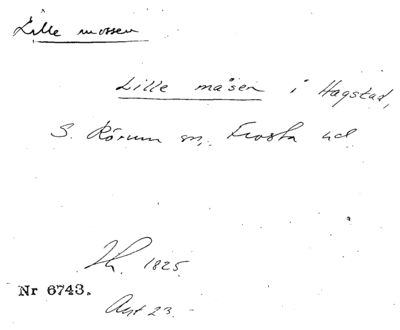 Lille mossen
Lille måsen i Hagstad,
S. Rörum sn, Frosta hd
1825.
Nr 6743.
Avt 23.